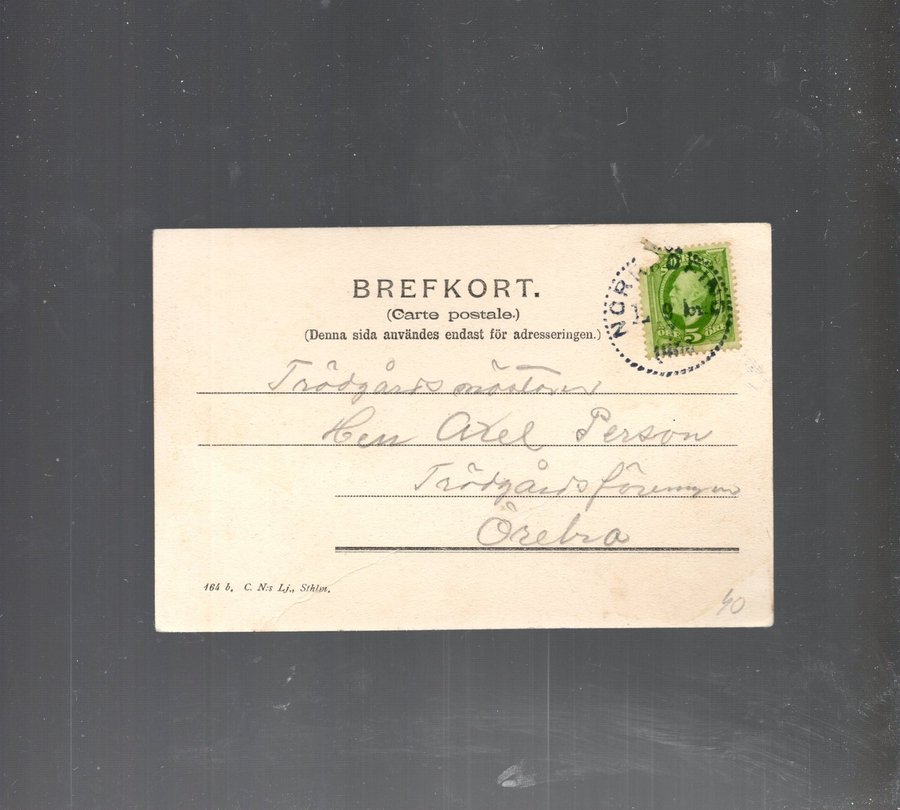 BREFKORT.
(Carte postale.)
(Denna sida användes endast för adresseringen.)
5
Trädgårdsmästaren
Herr Axel Person
Trädgårdsföreningen
Örebro
164 b. C. N:s Lj., Sthlm.
40